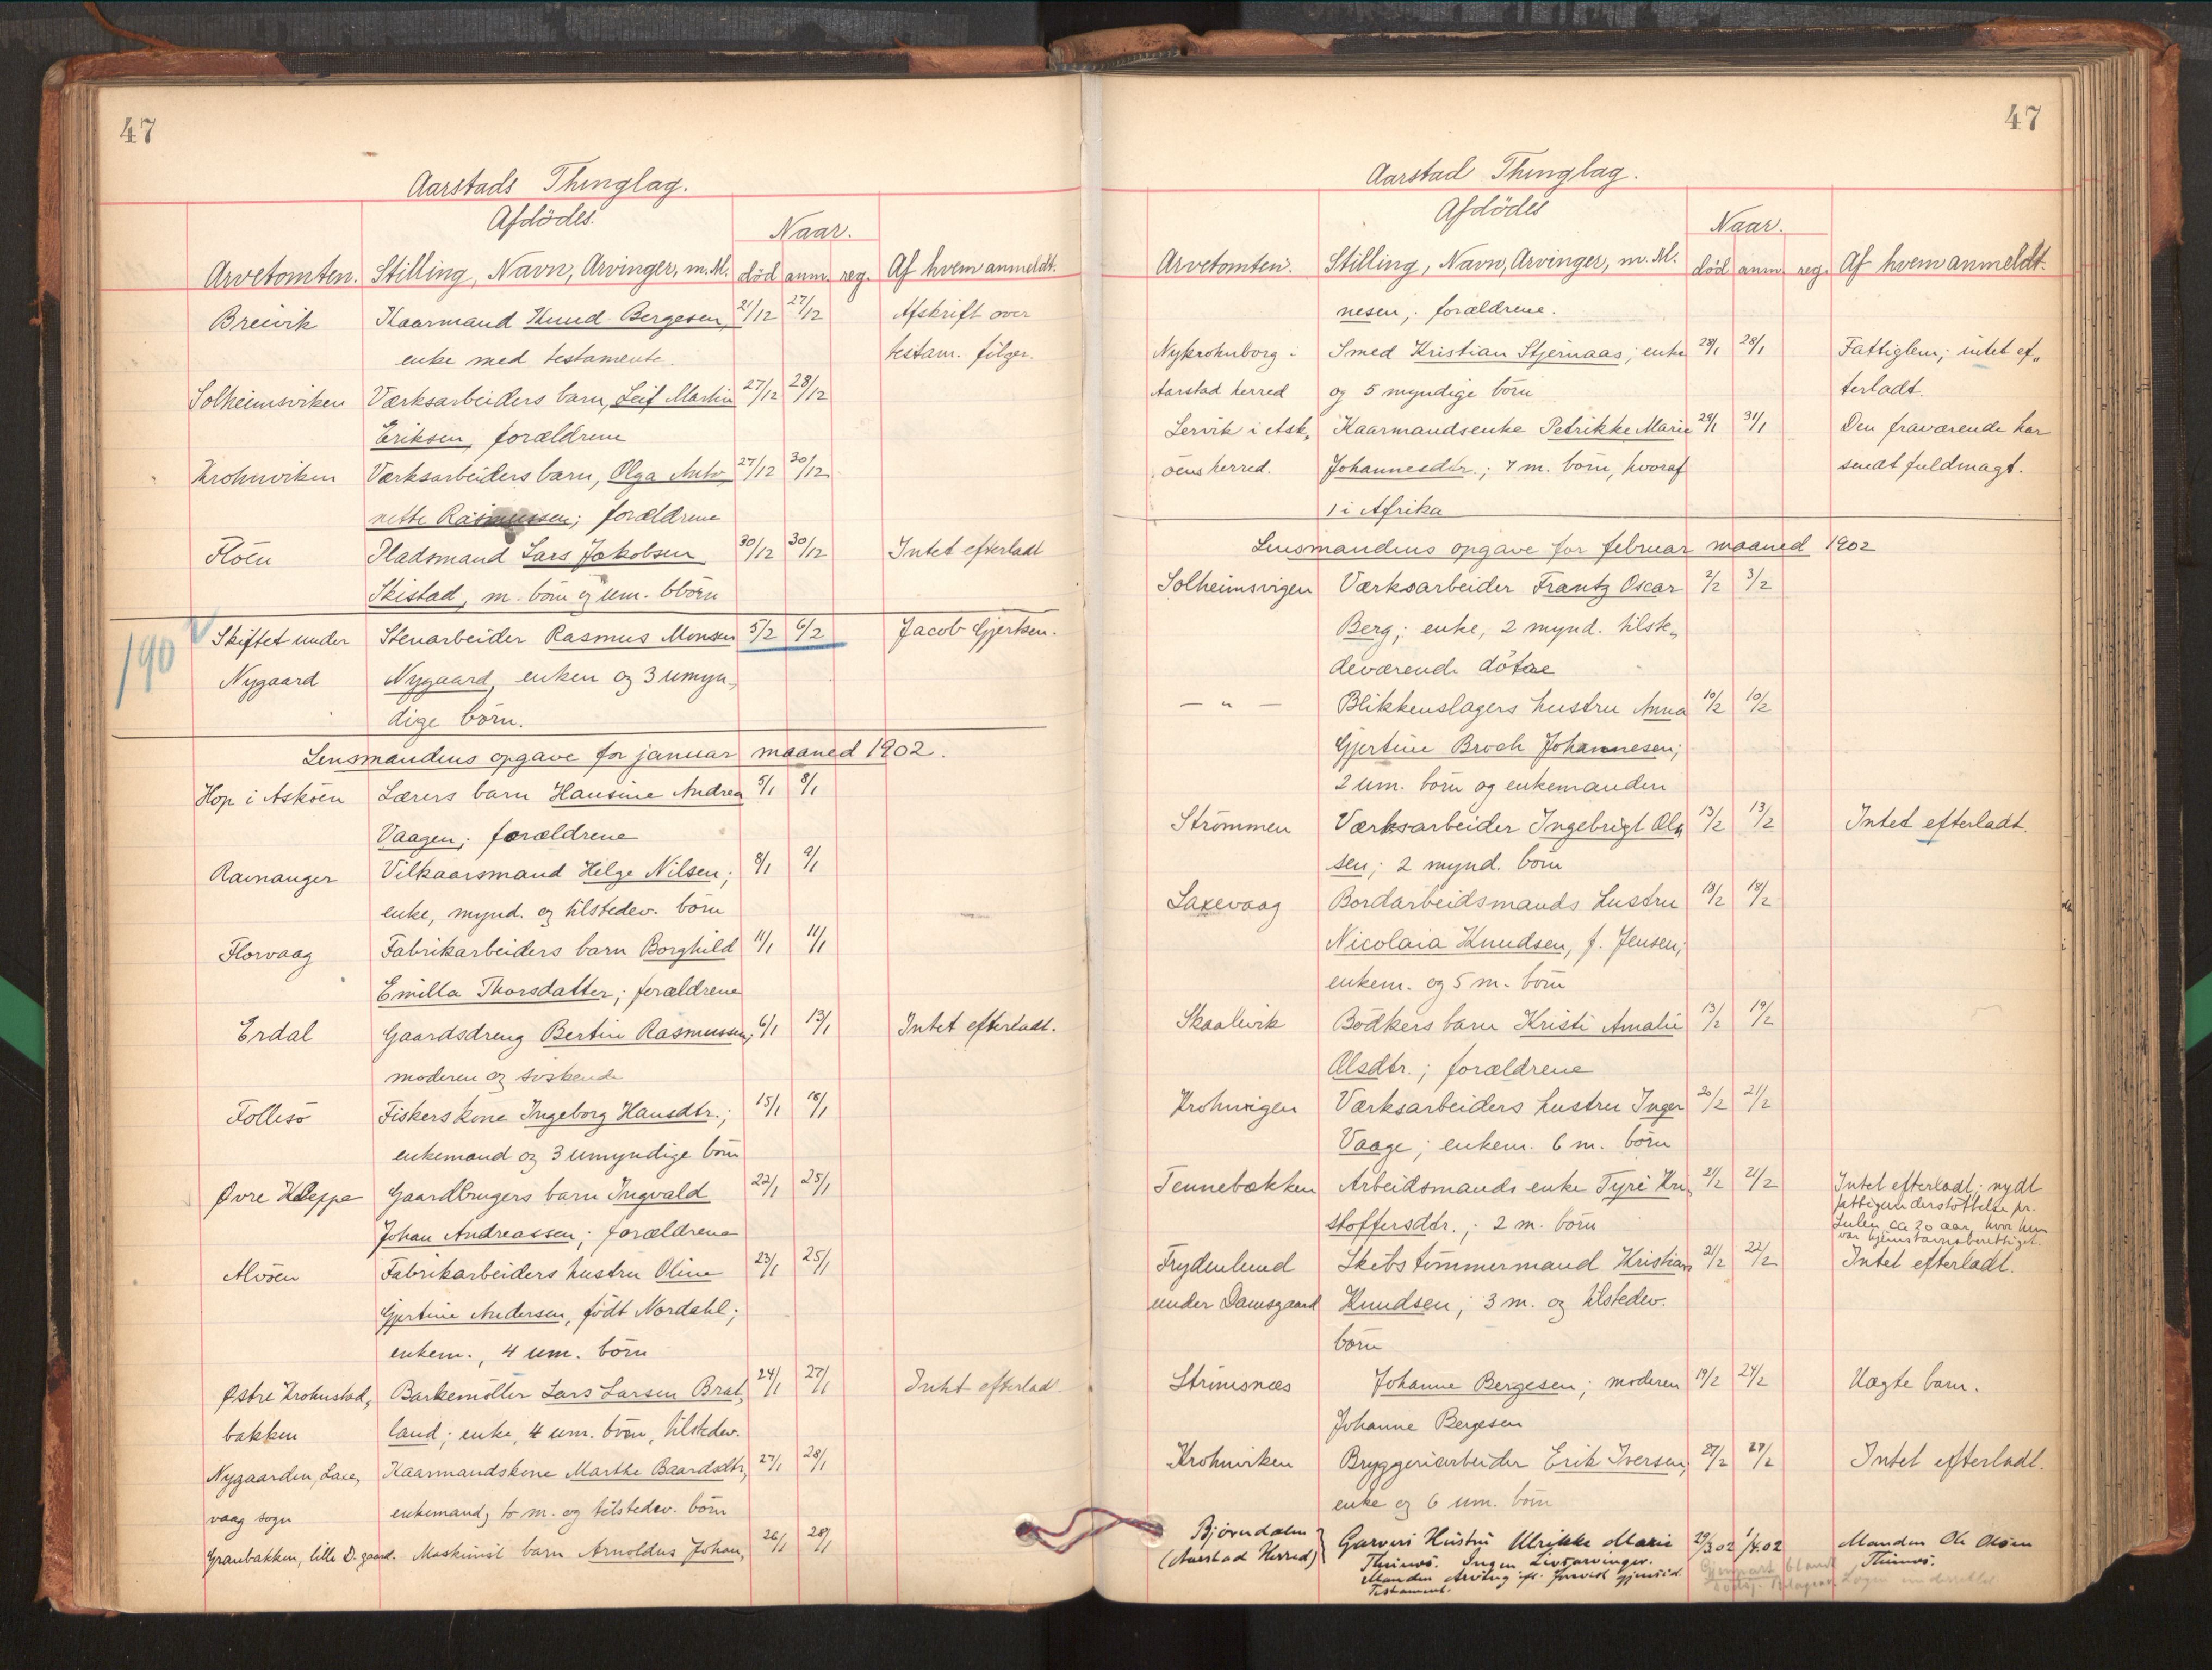 47
Aarstads Thinglag.
Afdödes.
Naar.
Arvetomten. Stilling, Navn, Arvinger, m.M. död anm. reg. Af hvem anmeldt.
Breivik Kaarmand Knud Bergesen, 21/12 27/12 Afskrift over
enke med testamente. testam. fölger.
Solheimsviken Værksarbeiders barn, Leif Martin 27/12 28/12
Eriksen, forældrene
Krohnviken Værksarbeiders barn, Olga Anto„ 27/12 30/12
nette Rasmussen; forældrene
Flöen Pladsmand Lars Jakobsen 30/12 30/12 Intet efterladt
Skistad, m. börn og um. börn
190 Skiftet under Stenarbeider Rasmus Monsen 5/2 6/2 Jacob Gjertsen.
Nygaard Nygaard, enken og 3 umyn„
dige börn.
Lensmandens opgave for januar maaned 1902.
Hop i Asköen Lærers barn Hansine Andrea 5/1 8/1
Vaagen; forældrene
Ramanger Vilkaarsmand Helge Nilsen; 8/1 9/1
enke, mynd. og tilstedev. börn
Florvaag Fabrikarbeiders barn Borghild 11/1 11/1
Emilla Thorsdatter; forældrene
Erdal Gaardsdreng Bertin Rasmussen; 6/1 13/1 Intet efterladt.
moderen og söskende
Follesö Fiskers kone Ingeborg Hansdtr.; 15/1 18/1
enkemand og 3 umyndige börn
Øvre Kleppe Gaardbrugers barn Ingvald 22/1 25/1
Johan Andreassen; forældrene
Alvöen Fabrikarbeiders hustru Oline 23/1 25/1
Gjertine Andersen, födt Nordahl;
enkem., 4 um. börn
Østre Krohnstad„ Barkemöller Lars Larsen Brat„ 24/1 27/1 Intet efterladt
bakken land; enke, 4 um. börn, tilstedev.
Nygaarden, Laxe„ Kaarmandskone Marthe Baardsdtr, 27/1 28/1
vaag sogn enkemand, to m. og tilstedev. börn
Granbakken, lille D.gaard. Maskinist barn Arnoldus Johan„ 26/1 28/1
47
Aarstad Thinglag.
Afdödes
Naar.
Arvetomten. Stilling, Navn, Arvinger, m. M. död anm. reg. Af hvem anmeldt.
nesen; forældrene.
Nykrohnborg i Smed Kristian Stjernaas; enke 28/1 28/1 Fattiglem; intet ef„
Aarstad herred og 5 myndige börn terladt.
Lervik i Ask„ Kaarmandsenke Petrikke Marie 29/1 31/1 Den fraværende har
öens herred. Johannesdtr.; 7 m. börn, hvoraf sendt fuldmagt.
1 i Afrika
Lensmandens opgave for februar maaned 1902
Solheimsvigen Værksarbeider Frantz Oscar 2/2 3/2
Berg; enke, 2 mynd. tilste„
deværende dötre
— „ — Blikkenslagers hustru Anna 10/2 10/2
Gjertine Broch Johannesen;
2 um. börn og enkemanden
Strömmen Værksarbeider Ingebrigt Ol„ 13/2 13/2 Intet efterladt.
sen; 2 mynd. börn
Laxevaag Bordarbeidsmands hustru 13/2 18/2
Nicolaia Knudsen, f. Jensen;
enkem. og 5 m. börn
Skaalevik Bödkers barn Kristi Amalie 13/2 19/2
Olsdtr.; forældrene
Krohnvigen Værksarbeiders hustru Inger 20/2 21/2
Vaage; enkem. 6 m. börn
Tennebækken Arbeidsmands enke Tyri Kri„ 21/2 21/2 Intet efterladt; nydt
stoffersdtr.; 2 m. börn fattigunderstöttelse pr.
Sulen ca 20 aar, hvor hun
var hjemstavnsberettiget.
Frydenlund Skibstömmermand Kristian 21/2 22/2 Intet efterladt.
under Damsgaard Knudsen; 3 m. og tilstedev.
börn
Strömsnæs Johanne Bergesen; moderen 19/2 24/2 Uægte barn.
Johanne Bergesen
Krohnviken Bryggeriarbeider Erik Iversen, 27/2 27/2 Intet efterladt.
enke og 6 um. börn
Björndalen Garveri Hustru Ulrikke Marie 29/3 02 1/4.02 Manden Ole Olsen
(Aarstad Herred) Thimös. Ingen Livsarvinger. Thimös.
Manden Arving efter gjensid.
Testament.